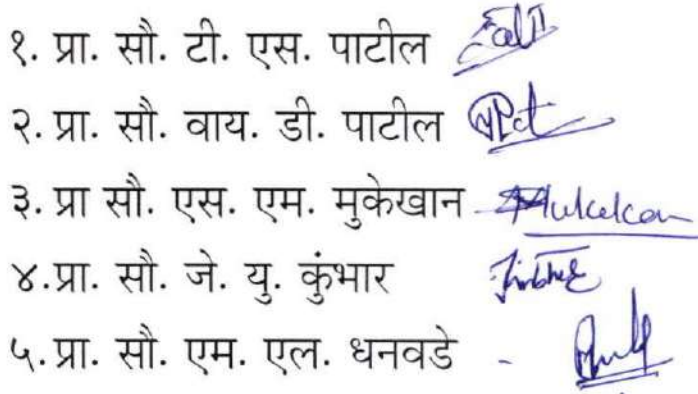 १. प्रा. सौ. टी. एस. पाटील
२. प्रा. सौ. वाय. डी. पाटील
३. प्रा सौ. एस. एम. मुकेखान
४.प्रा. सौ. जे. यु. कुंभार
५. प्रा. सौ. एम. एल. धनवडे -